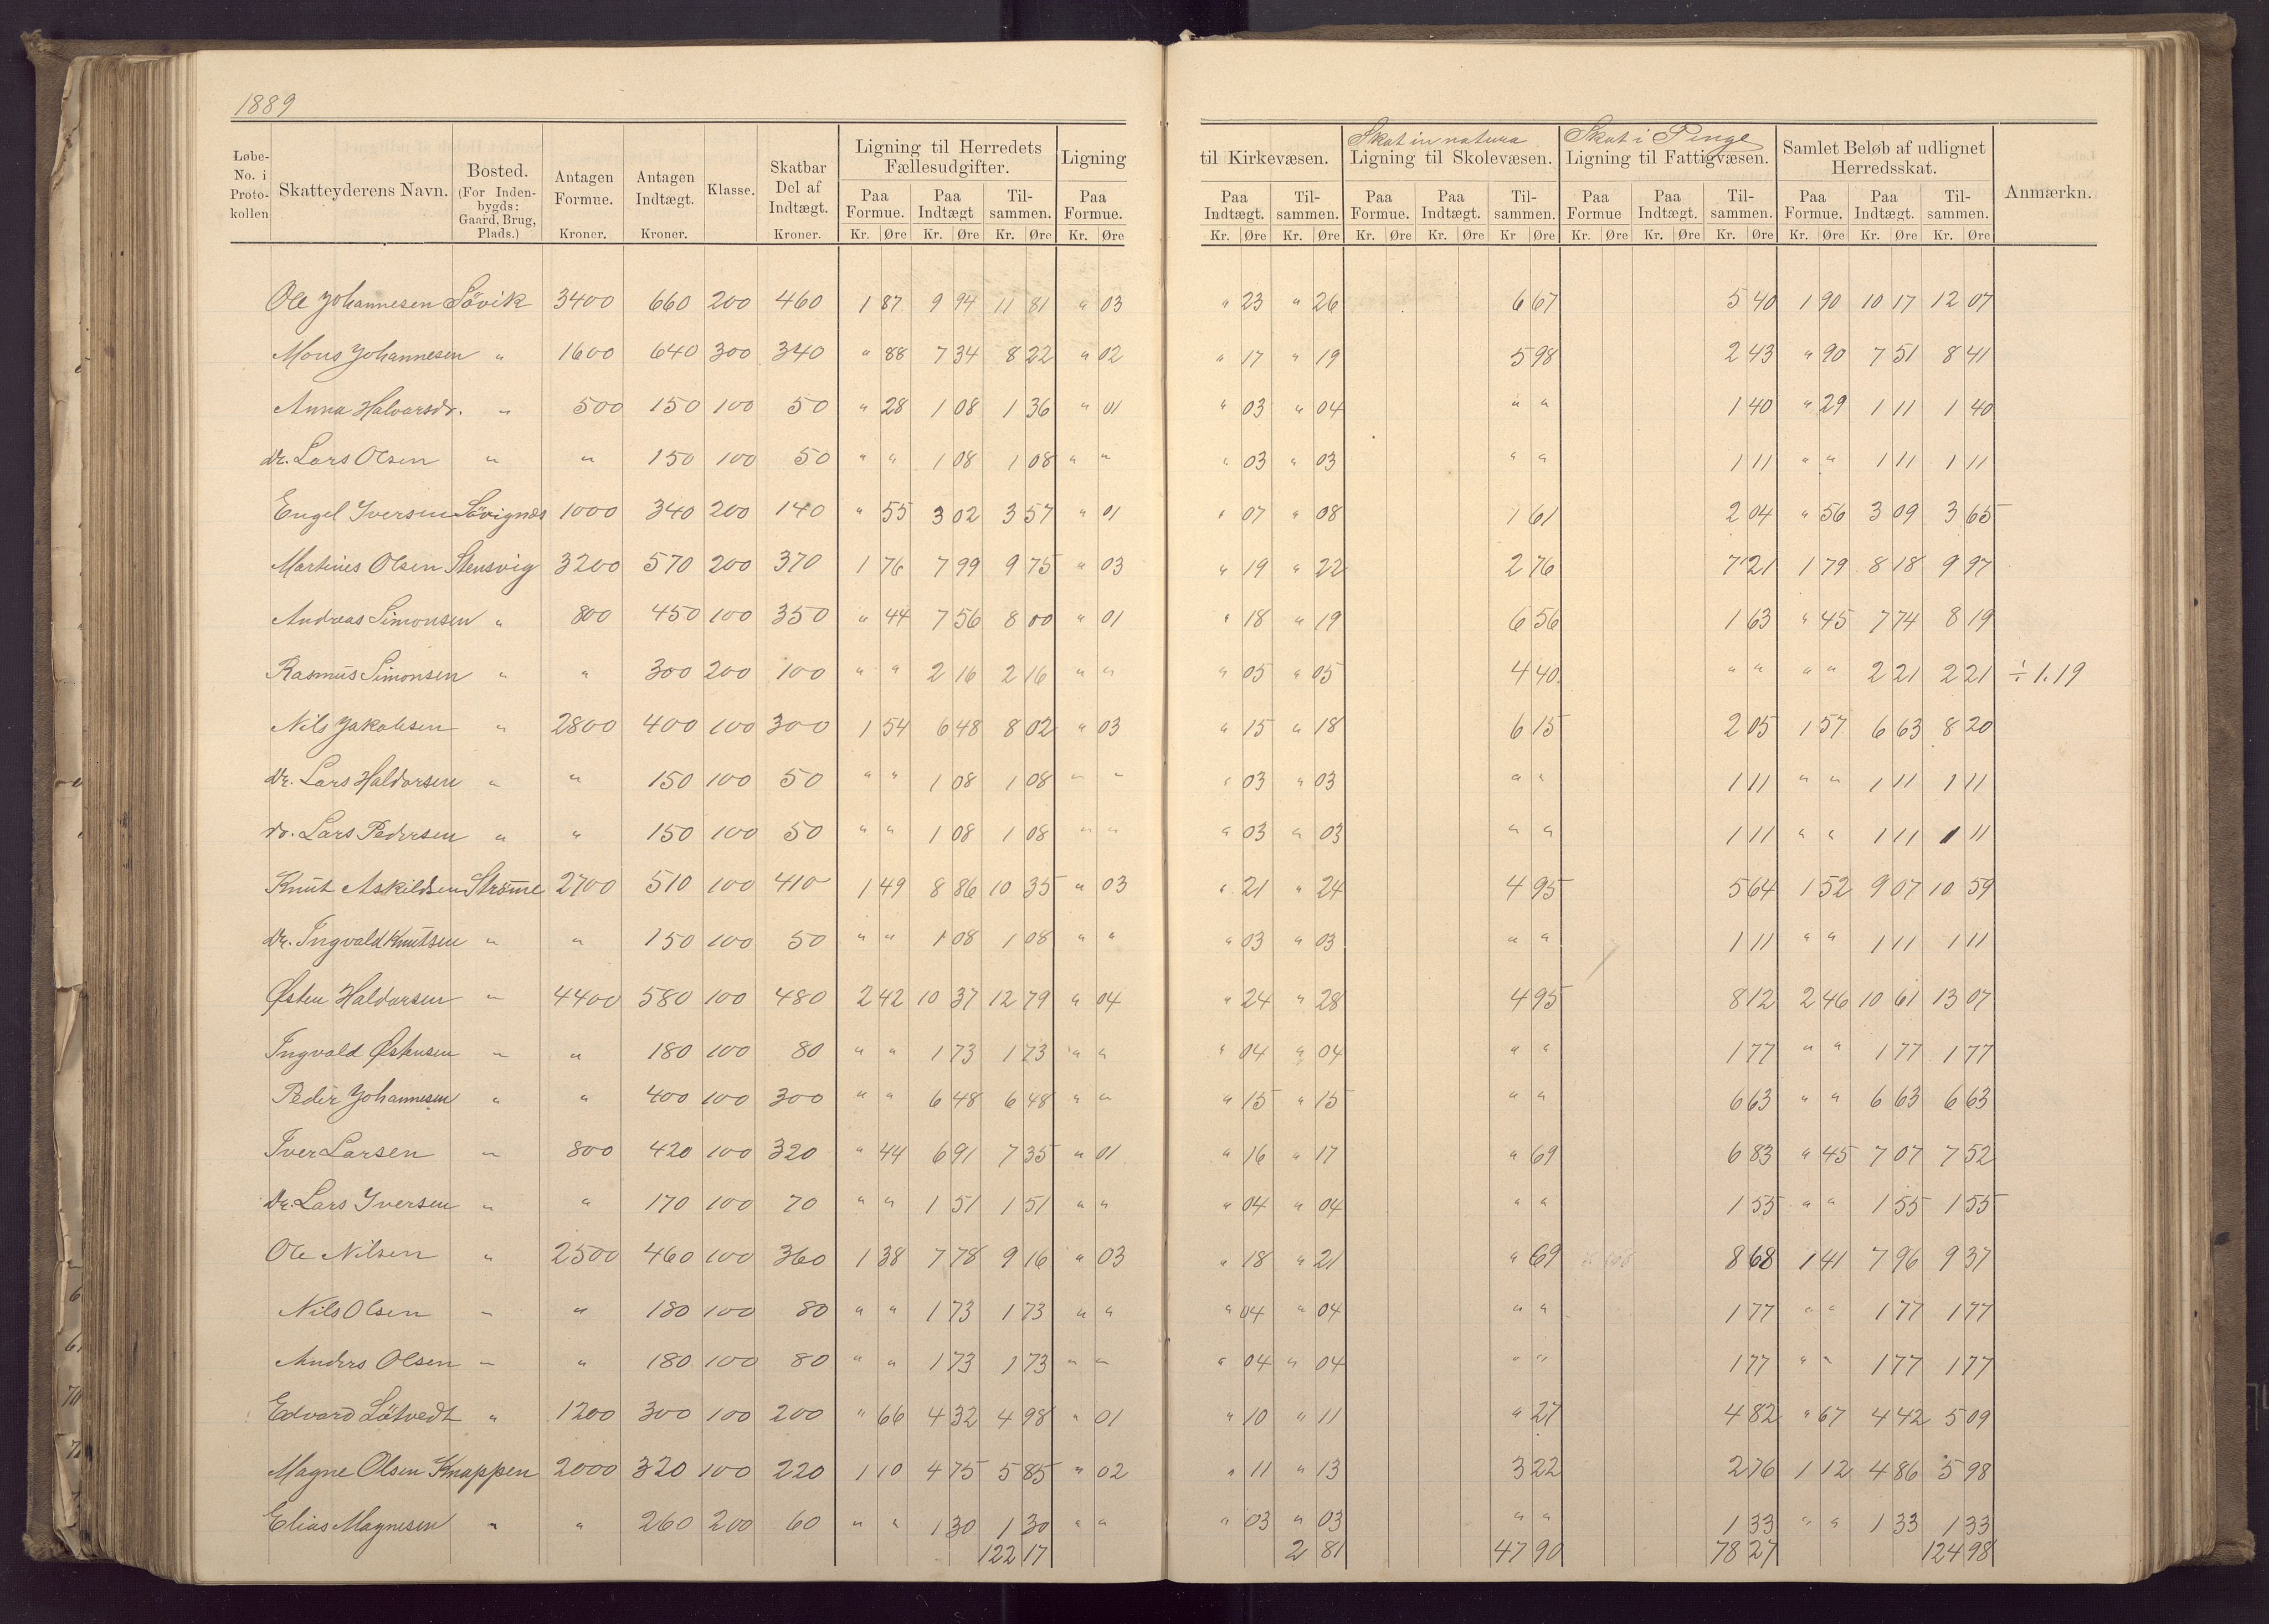 1889
Løbe-No. i Proto-kollen | Skatteyderens Navn. | Bosted. (For Inden-bygds: Gaard, Brug, Plads.) | Antagen Formue. Kroner. | Antagen Indtægt. Kroner. | Klasse. | Skatbar Del af Indtægt. Kroner. | Ligning til Herredets Fællesudgifter. Paa Formue. Kr. Øre | Paa Indtægt Kr. Øre | Til-sammen. Kr. Øre | Ligning Paa Formue. Kr. Øre | til Kirkevæsen. Paa Indtægt. Kr. Øre | Til-sammen. Kr. Øre | Skat in natura Ligning til Skolevæsen. Paa Formue. Kr. Øre | Paa Indtægt. Kr. Øre | Til-sammen. Kr Øre | Skat i Penge Ligning til Fattigvæsen. Paa Formue Kr. Øre | Paa Indtægt. Kr. Øre | Til-sammen. Kr. Øre | Samlet Beløb af udlignet Herredsskat. Paa Formue. Kr. Øre | Paa Indtægt. Kr. Øre | Til-sammen. Kr. Øre | Anmærkn.
Ole Johannesen Sövik 3400 660 200 460 1 87 9 94 11 81 " 03 " 23 " 26 6 67 5 40 1 90 10 17 12 07
Mons Johannesen " 1600 640 300 340 " 88 7 34 8 22 " 02 " 17 " 19 5 98 2 43 " 90 7 51 8 41
Anna Halvorsdr. " 500 150 100 50 " 28 1 08 1 36 " 01 " 03 " 04 " " 1 40 " 29 1 11 1 40
Dr. Lars Olsen " " 150 100 50 " " 1 08 1 08 " " " 03 " 03 " " 1 11 " " 1 11 1 11
Engel Iversen Sövignæs 1000 340 200 140 " 55 3 02 3 57 " 01 " 07 " 08 1 61 2 04 " 56 3 09 3 65
Martines Olsen Stensvig 3200 570 200 370 1 76 7 99 9 75 " 03 " 19 " 22 2 76 7 21 1 79 8 18 9 97
Andreas Simonsen " 800 450 100 350 " 44 7 56 8 00 " 01 " 18 " 19 6 56 1 63 " 45 7 74 8 19
Rasmus Simonsen " " 300 200 100 " " 2 16 2 16 " " " 05 " 05 4 40 " " " " 2 21 2 21 ÷ 1.19
Nils Jakobsen " 2800 400 100 300 1 54 6 48 8 02 " 03 " 15 " 18 6 15 2 05 1 57 6 63 8 20
Dr. Lars Haldorsen " " 150 100 50 " " 1 08 1 08 " " " 03 " 03 " " 1 11 " " 1 11 1 11
Dr. Lars Pedersen " " 150 100 50 " " 1 08 1 08 " " " 03 " 03 " " 1 11 " " 1 11 1 11
Knut Askildsen Strömme 2700 510 100 410 1 49 8 86 10 35 " 03 " 21 " 24 4 95 5 64 1 52 9 07 10 59
Dr. Ingvald Knutsen " " 150 100 50 " " 1 08 1 08 " " " 03 " 03 " " 1 11 " " 1 11 1 11
Østen Haldorsen " 4400 580 100 480 2 42 10 37 12 79 " 04 " 24 " 28 4 95 8 12 2 46 10 61 13 07
Ingvald Østensen " " 180 100 80 " " 1 73 1 73 " " " 04 " 04 " " 1 77 " " 1 77 1 77
Peder Johannesen " " 400 100 300 " " 6 48 6 48 " " " 15 " 15 " " 6 63 " " 6 63 6 63
Iver Larsen " 800 420 100 320 " 44 6 91 7 35 " 01 " 16 " 17 " 69 6 83 " 45 7 07 7 52
Dr. Lars Iversen " " 170 100 70 " " 1 51 1 51 " " " 04 " 04 " " 1 55 " " 1 55 1 55
Ole Nilsen " 2500 460 100 360 1 38 7 78 9 16 " 03 " 18 " 21 " 69 8 68 1 41 7 96 9 37
Nils Olsen " " 180 100 80 " " 1 73 1 73 " " " 04 " 04 " " 1 77 " " 1 77 1 77
Anders Olsen " " 180 100 80 " " 1 73 1 73 " " " 04 " 04 " " 1 77 " " 1 77 1 77
Edvard Lütvedt " 1200 300 100 200 " 66 4 32 4 98 " 01 " 10 " 11 " 27 4 82 " 67 4 42 5 09
Magne Olsen Knappen 2000 320 100 220 1 10 4 75 5 85 " 02 " 11 " 13 3 22 2 76 1 12 4 86 5 98
Elias Magnesen " " 260 200 60 " " 1 30 1 30 " " " 03 " 03 " " 1 33 " " 1 33 1 33
122 17 2 81 47 90 78 27 124 98